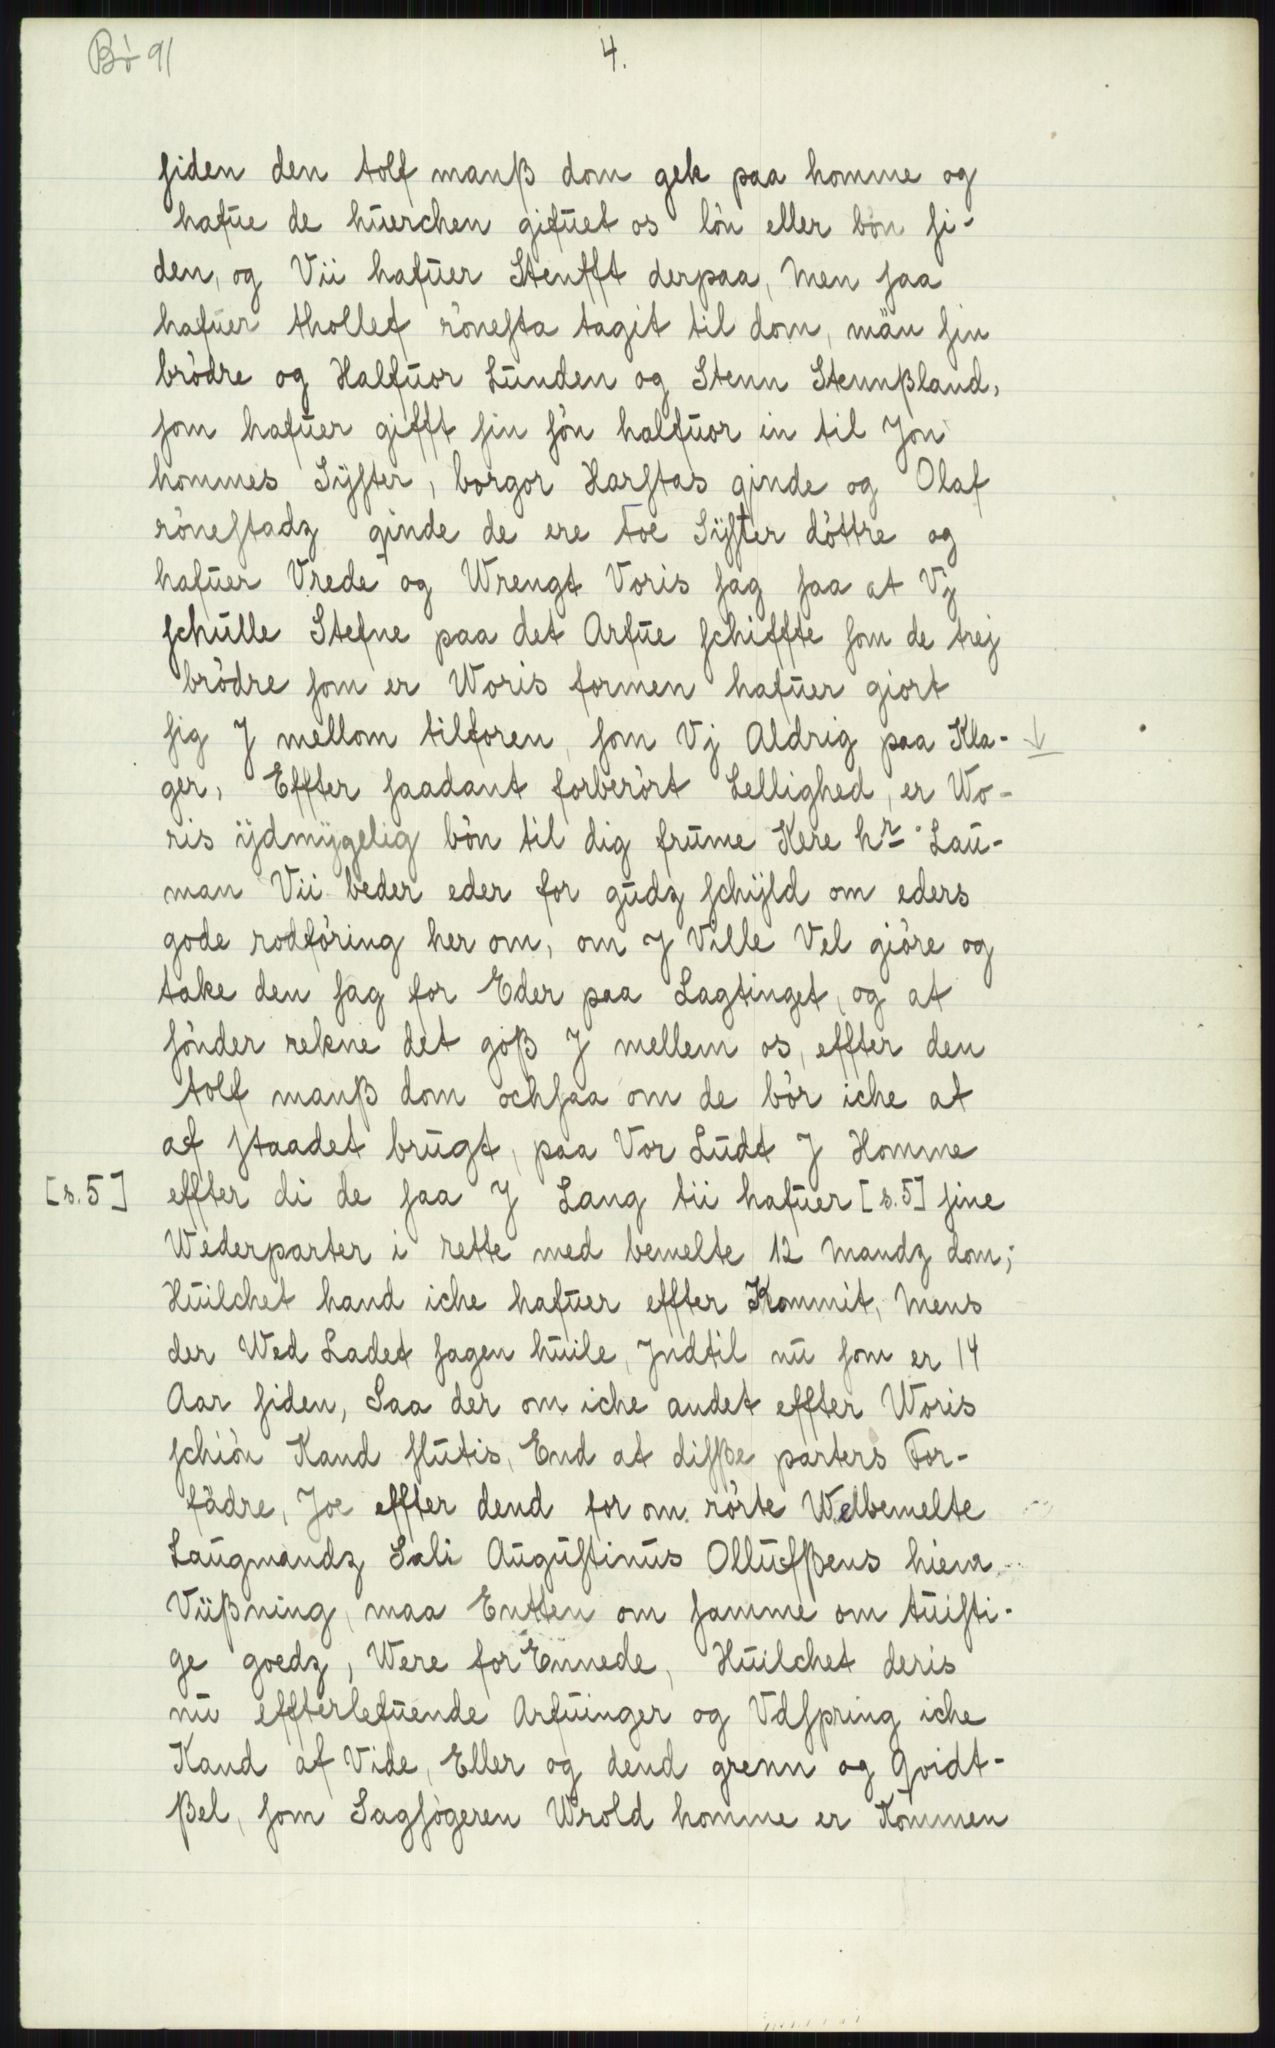 Bö 91
4.
siden den tolf manß dom gek paa homme og
hafue de huerchen gifuet os lön eller bön si-
den, og Vii hafuer Stenfft derpaa, Men saa
hafuer thollef rönesta tagit til dom, män sin
brödre og Halfuor Lunden og Stenn Stennßland,
som hafuer gifft sin sön halfuor in til Jon
hommes Sÿster, borgor Harstas qinde og Olaf
rönestadz qinde de ere Toe Sÿster döttre og
hafuer Vrede og Wrengt Voris sag saa at Vj
schulle Stefne paa det Arfue schiffte som de trej
brödre som er Woris formen hafuer giort
sig J mellom tilforen, som Vj Aldrig paa Kla-
ger, Effter saadant forberört Lellighed, er Wo-
ris ÿdmÿgelig bön til dig frume Kere hr Lau-
man Vii beder eder for gudz schÿld om eders
gode rodföring her om, om J Ville Vel giöre og
take den sag for Eder paa Lagtinget, og at
sönder rekne det göß J mellem os, effter den
tolf manß dom ochsaa om de bör iche at
af staadet brugt, paa Vor Ludt J Homme
[s. 5] effter di de saa J Lang tii hafuer [s. 5] sine
Wederparter i rette med bemelte 12 Mandz dom;
Huilchet hand iche hafuer effter Kommit, Mens
der Wed Ladet sagen huile, Jndtil nu som er 14
Aar siden, Saa der om iche andet effter Woris
schiön Kand slutis, End at disße parters For-
fädre, Joe effter dend for om rörte Welbemelte
Laugmandz Sali Augustinus Ollufßens hiem
Vüßning, maa Entten om samme om tuisti-
ge goedz, Were for Ennede, Huilchet deris
nu effterlefuende Arfuinger og Vdspring iche
Kand af Vide, Eller og dend grenn og Qvidt-
ßel, som Sagsögeren Wrold homme er Kommen